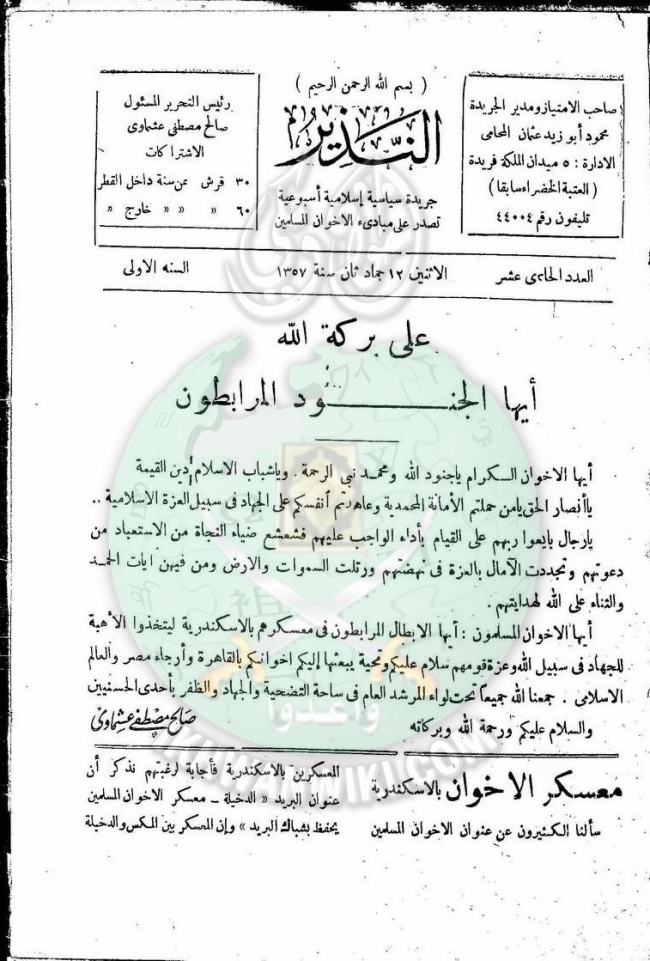 ( بسم الله الرحمن الرحيم )
النَّذِير
جريدة سياسية إسلامية أسبوعية
تصدر على مبادىء الاخوان المسلمين
صاحب الامتياز ومدير الجريدة
محمود أبو زيد عثمان المحامى
الادارة : ٥ ميدان الملكة فريدة
( العتبة الخضراء سابقا )
تليفون رقم ٤٤٠٠٤
رئيس التحرير المسئول
صالح مصطفى عشماوى
الاشتراكات
٣٠ قرش عن سنة داخل القطر
٦٠ » » » خارج »
العدد الحادى عشر
الاثنين ١٢ جماد ثان سنة ١٣٥٧
السنه الاولى
على بركة الله
أيها الجنـــــود المرابطون
أيها الاخوان الكرام ياجنود الله ومحمد نبي الرحمة . وياشباب الاسلام دين القيمة
ياأنصار الحق يامن حملتم الأمانة المحمدية وعاهدتم أنفسكم على الجهاد فى سبيل العزة الاسلامية ..
يارجال بايعوا ربهم على القيام بأداء الواجب عليهم فشعشع ضياء النجاة من الاستعباد من
دعوتهم وتجددت الآمال بالعزة فى نهضتهم ورتلت السموات والارض ومن فيهن ايات الحمد
والثناء على الله لهدايتهم .
أيها الاخوان المسلمون : أيها الابطال المرابطون فى معسكرهم بالاسكندرية ليتخذوا الأهبة
للجهاد فى سبيل الله وعزة قومهم سلام عليكم وتحية يبعثها إليكم اخوانكم بالقاهرة وأرجاء مصر والعالم
الاسلامى . جمعنا الله جميعاً تحت لواء المرشد العام فى ساحة التضحية والجهاد والظفر بأحدى الحسنيين
والسلام عليكم ورحمة الله وبركاته
صالح مصطفى عشماوى
معسكر الاخوان بالاسكندرية
سألنا الكثيرون عن عنوان الاخوان المسلمين
المعسكرين بالاسكندرية فأجابة لرغبتهم نذكر أن
عنوان البريد « الدخيلة – معسكر الاخوان المسلمين
يحفظ بشباك البريد » وإن المعسكر بين المكس والدخيلة
وأعدوا
IKHWANWIKI.COM